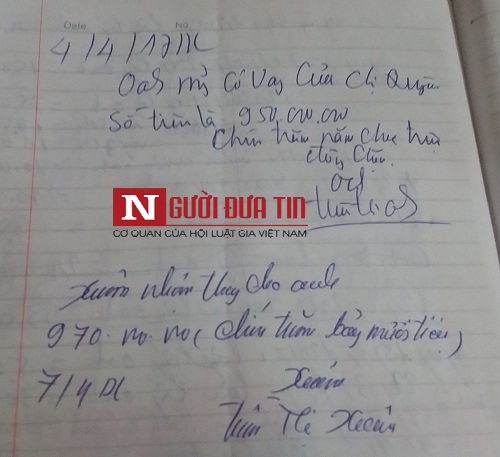 Date No.
4/4/17 DL
Oanh Mỹ Có Vay Của chị Quyên
Số tiền là 950.000.000
Chín trăm năm chục triệu
đồng Chẵn.
NGƯỜI ĐƯA TIN
CƠ QUAN CỦA HỘI LUẬT GIA VIỆT NAM
Xuân nhận thay cho oanh
970.000.000 (chín trăm bảy mươi triệu)
7/4 DL
Xuân
Trần Thị Xuân